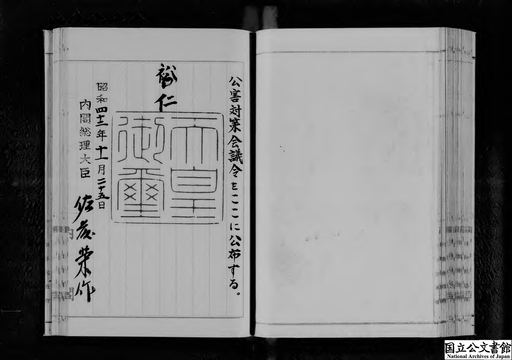 公害対策会議令をここに公布する。
裕仁
天皇
御璽
昭和四十二年十一月二十五日
内閣総理大臣
佐藤榮作
国立公文書館
National Archives of Japan